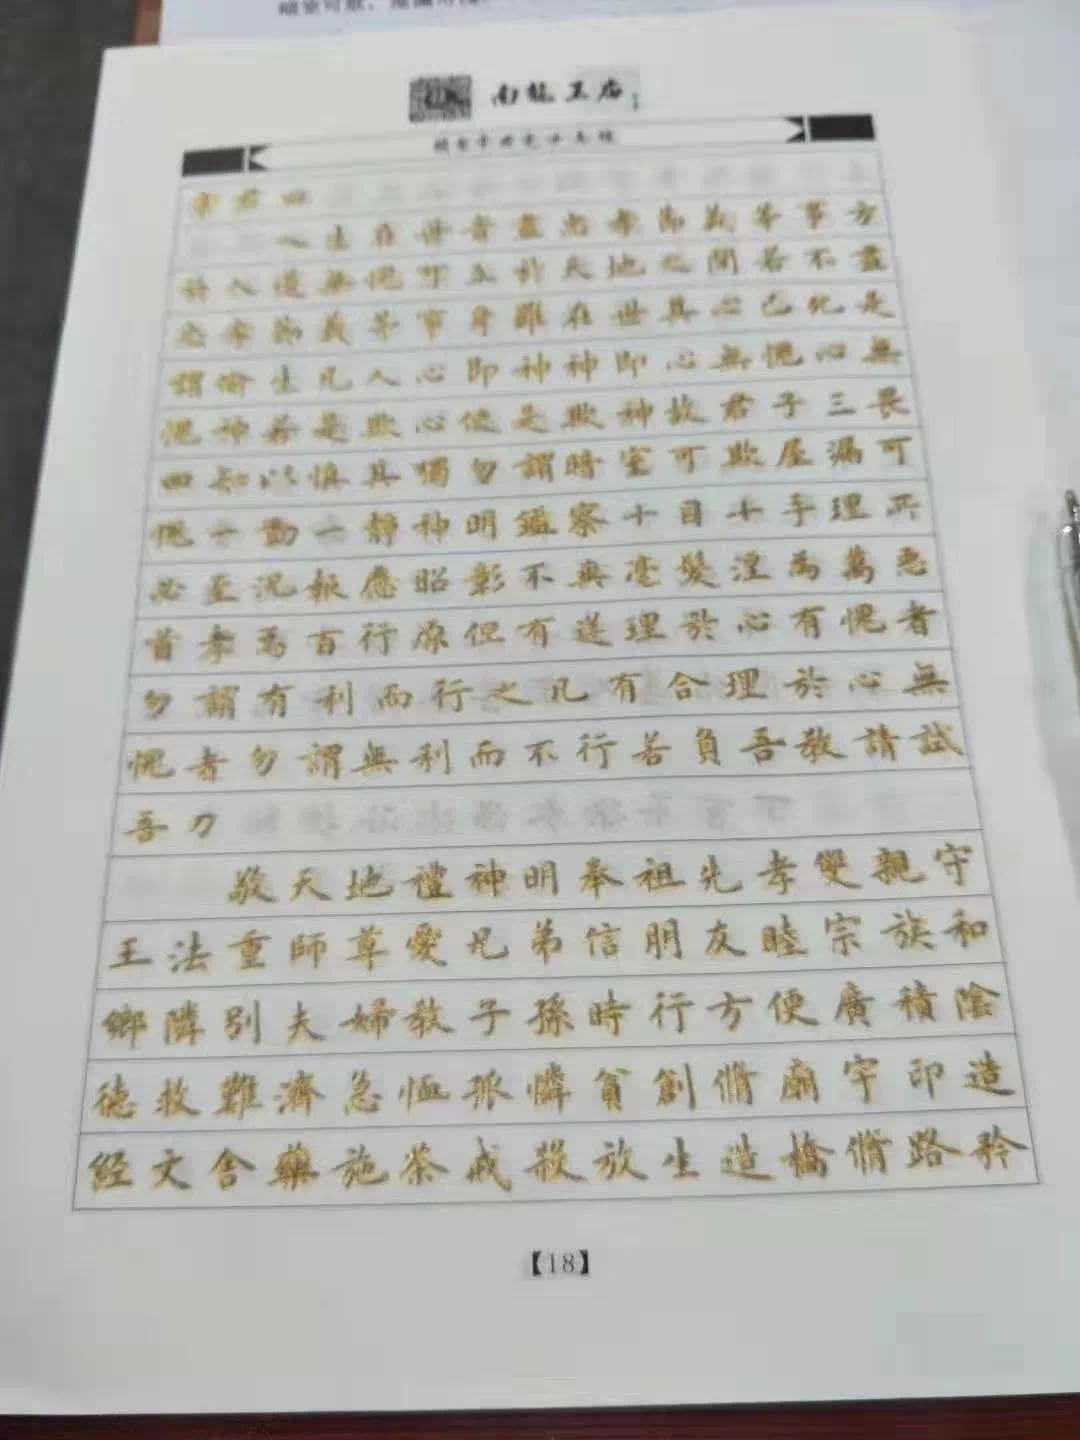 南龍王庙
帝君曰
人生在世貴盡忠孝節義等事方
於人道無愧可立於天地之間若不盡
忠孝節義等事身雖在世其心已死是
謂偷生凡人心即神神即心無愧心無
愧神若是欺心便是欺神故君子三畏
四知以慎其獨勿謂暗室可欺屋漏可
愧一動一靜神明鑑察十目十手理所
必至況報應昭彰不爽毫髮淫為萬惡
首孝為百行原但有逆理於心有愧者
勿謂有利而行之凡有合理於心無
愧者勿謂無利而不行若負吾教請試
吾刀
敬天地禮神明奉祖先孝雙親守
王法重師尊愛兄弟信朋友睦宗族和
鄉隣別夫婦教子孫時行方便廣積陰
德救難濟急恤孤憐貧創修廟宇印造
經文舍藥施茶戒殺放生造橋修路矜
【18】